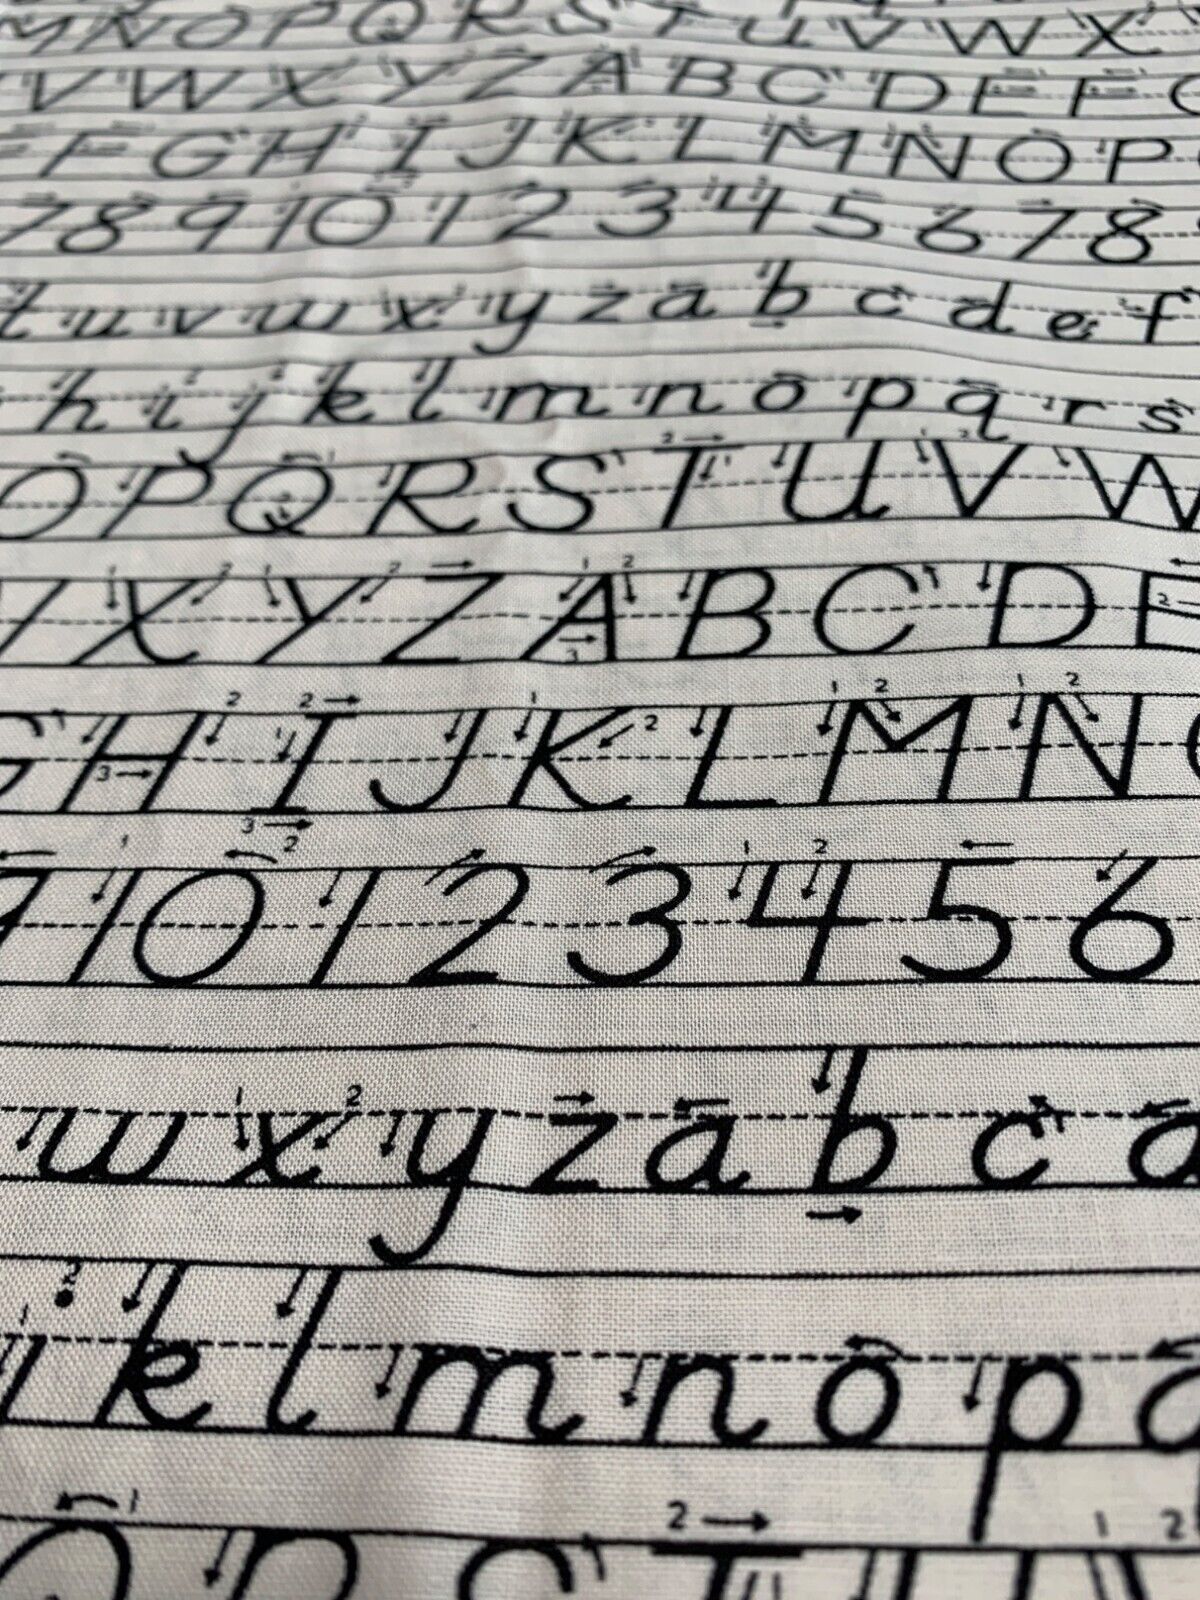 M N O P Q R S T U V W X
V W X Y Z A B C D E F
F G H I J K L M N O P
7 8 9 10 1 2 3 4 5 6 7 8
t u v w x y z a b c d e f
h i j k l m n o p q r s
O P Q R S T U V W
X Y Z A B C D E
G H I J K L M N
9 10 1 2 3 4 5 6
w x y z a b c
j k l m n o p